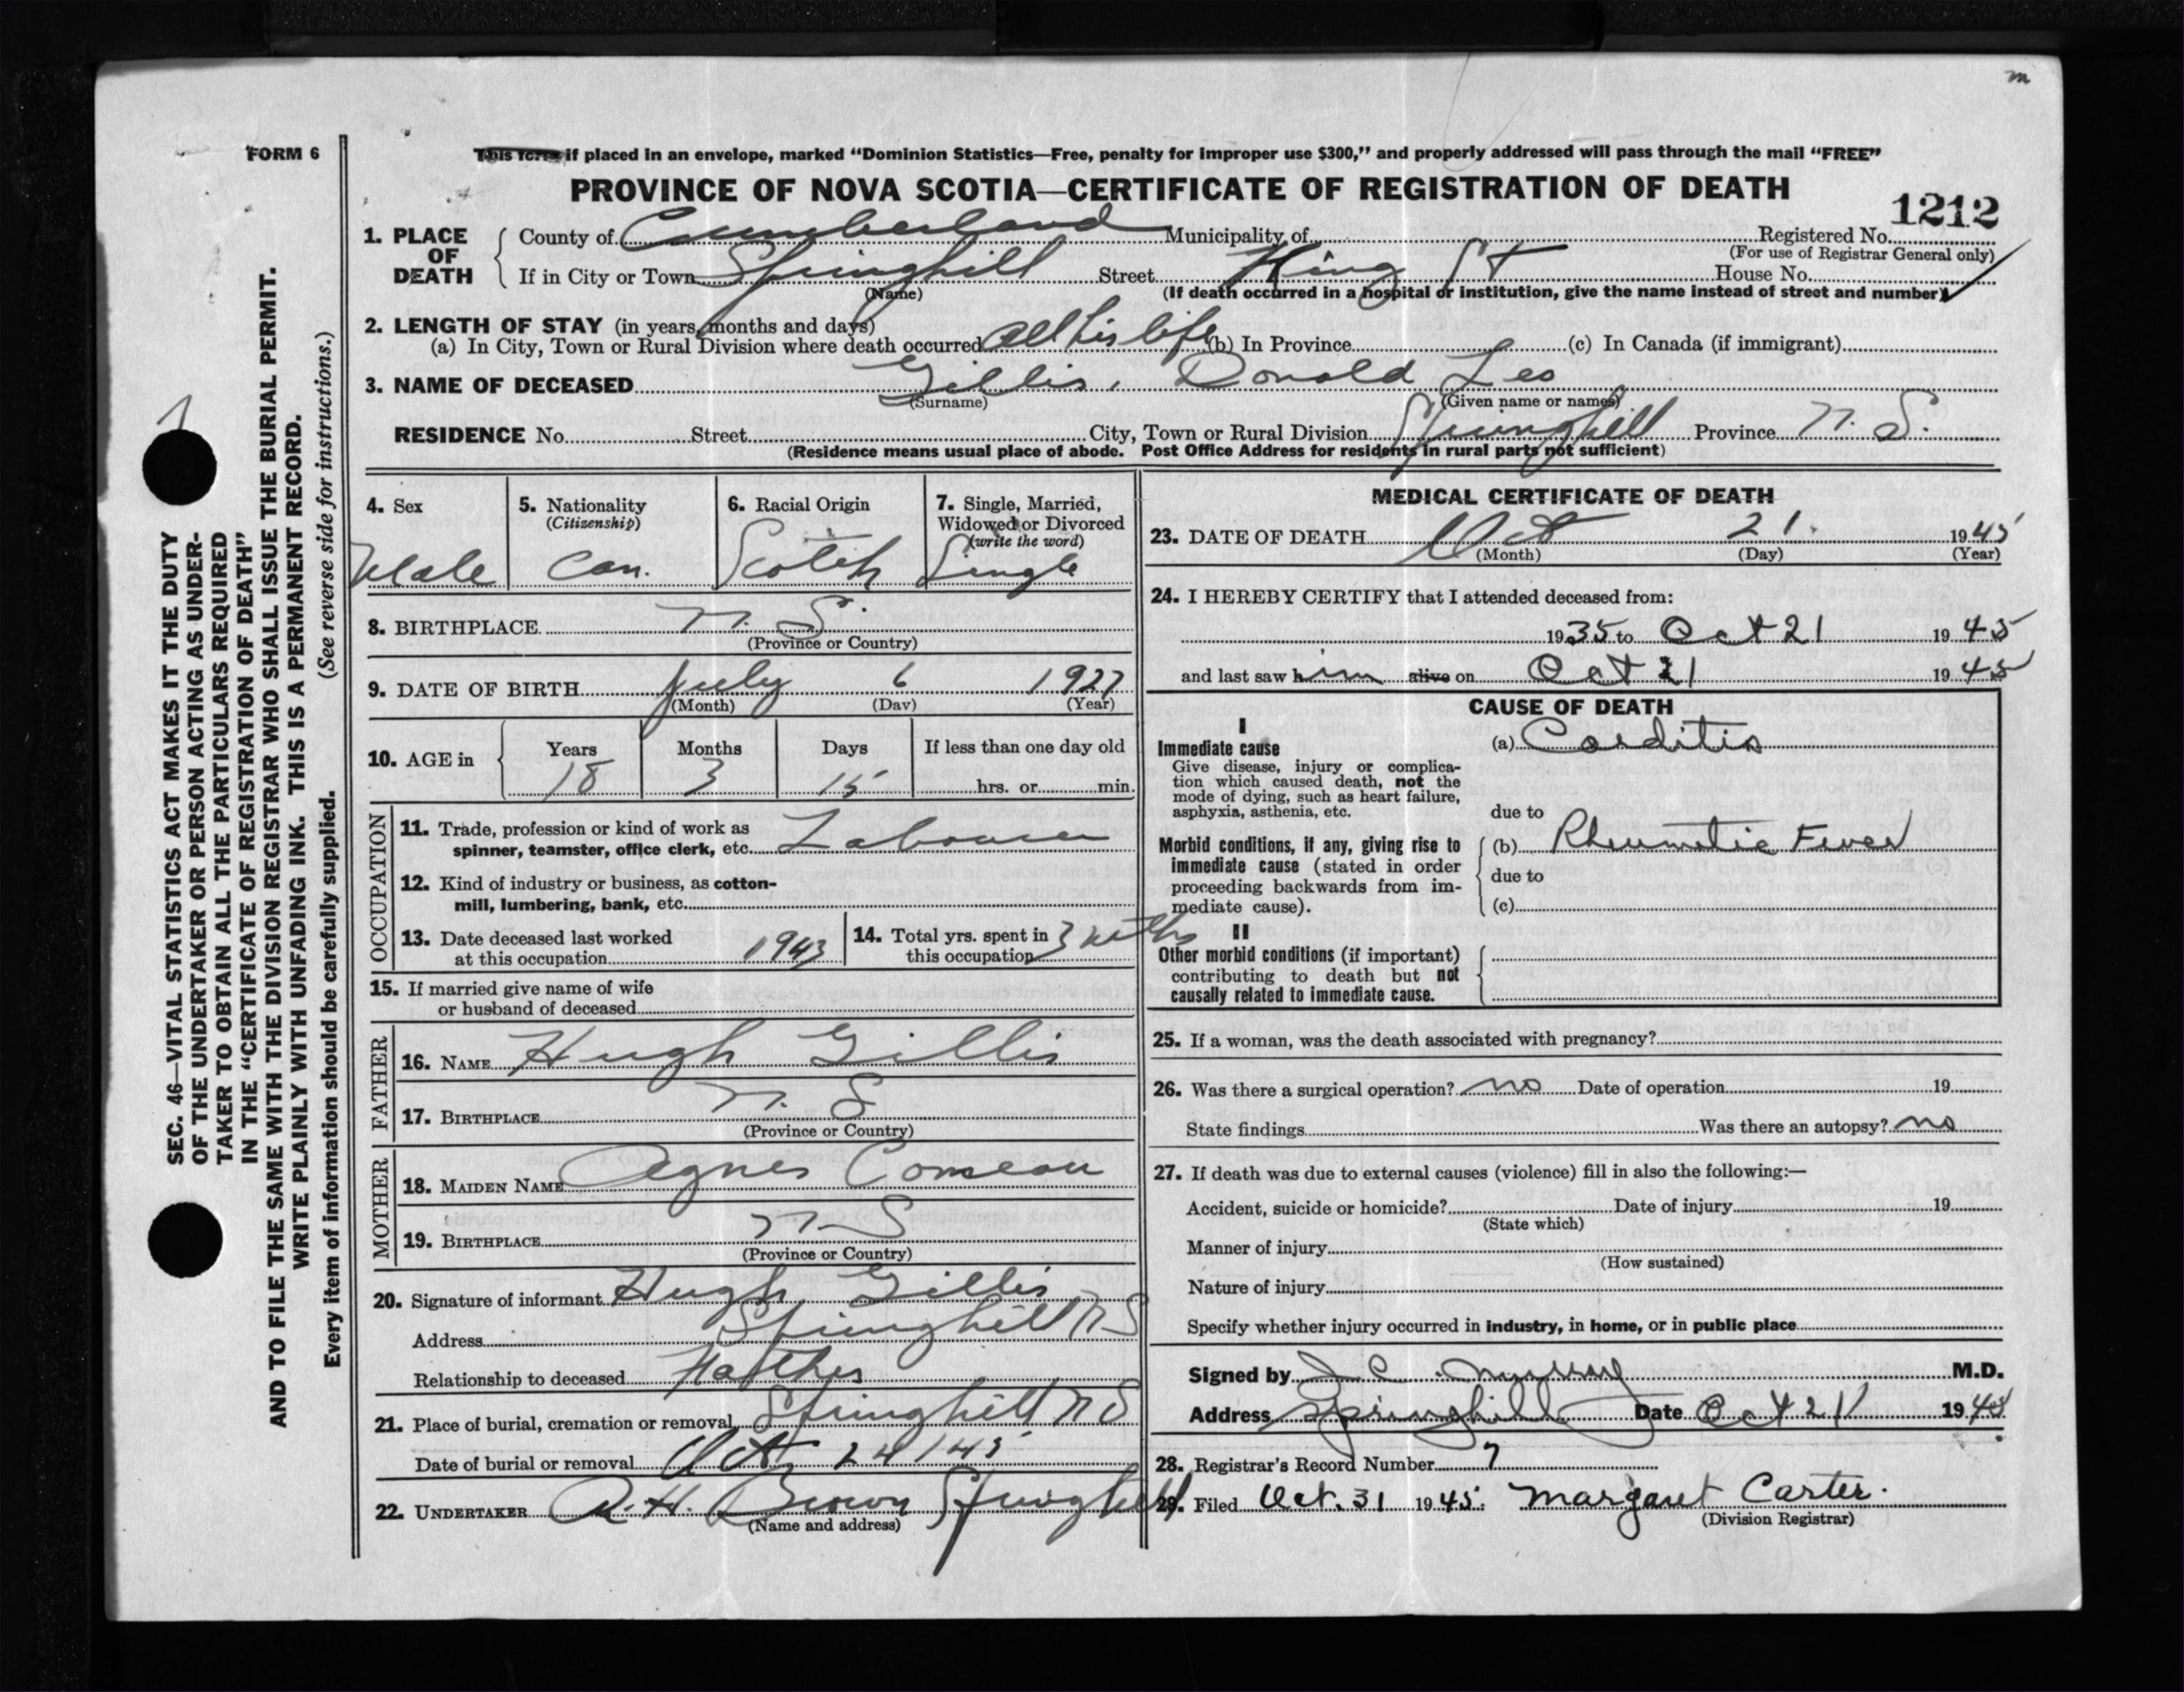 m
FORM 6
This form if placed in an envelope, marked “Dominion Statistics—Free, penalty for improper use $300,” and properly addressed will pass through the mail “FREE”
PROVINCE OF NOVA SCOTIA—CERTIFICATE OF REGISTRATION OF DEATH
1212
1. PLACE OF DEATH County of Cumberland Municipality of Registered No.
(For use of Registrar General only)
If in City or Town Springhill Street King St House No.
(Name) (If death occurred in a hospital or institution, give the name instead of street and number)
2. LENGTH OF STAY (in years, months and days)
(a) In City, Town or Rural Division where death occurred all his life (b) In Province (c) In Canada (if immigrant)
3. NAME OF DECEASED Gillis, Donald Leo
(Surname) (Given name or names)
RESIDENCE No. Street City, Town or Rural Division Springhill Province N. S.
(Residence means usual place of abode. Post Office Address for residents in rural parts not sufficient)
4. Sex Male
5. Nationality (Citizenship) Can.
6. Racial Origin Scotch
7. Single, Married, Widowed or Divorced (write the word) Single
8. BIRTHPLACE N. S.
(Province or Country)
9. DATE OF BIRTH July 6 1927
(Month) (Day) (Year)
10. AGE in Years Months Days If less than one day old
18 3 15 hrs. or min.
OCCUPATION
11. Trade, profession or kind of work as
spinner, teamster, office clerk, etc. Labourer
12. Kind of industry or business, as cotton-
mill, lumbering, bank, etc.
13. Date deceased last worked
at this occupation 1943
14. Total yrs. spent in
this occupation 3 mths
15. If married give name of wife
or husband of deceased
FATHER
16. NAME Hugh Gillis
17. BIRTHPLACE N. S
(Province or Country)
MOTHER
18. MAIDEN NAME Agnes Comeau
19. BIRTHPLACE N S
(Province or Country)
20. Signature of informant Hugh Gillis
Address Springhill N S
Relationship to deceased Father
21. Place of burial, cremation or removal Springhill N S
Date of burial or removal Oct 24/45
22. UNDERTAKER A. H. Brown Springhill
(Name and address)
MEDICAL CERTIFICATE OF DEATH
23. DATE OF DEATH Oct 21. 1945
(Month) (Day) (Year)
24. I HEREBY CERTIFY that I attended deceased from:
1935 to Oct 21 1945
and last saw him alive on Oct 21 1945
CAUSE OF DEATH
I
Immediate cause (a) Carditis
Give disease, injury or complica-
tion which caused death, not the
mode of dying, such as heart failure,
asphyxia, asthenia, etc. due to
Morbid conditions, if any, giving rise to (b) Rheumatic Fever
immediate cause (stated in order
proceeding backwards from im- due to
mediate cause). (c)
II
Other morbid conditions (if important)
contributing to death but not
causally related to immediate cause.
25. If a woman, was the death associated with pregnancy?
26. Was there a surgical operation? no Date of operation 19
State findings Was there an autopsy? no
27. If death was due to external causes (violence) fill in also the following:—
Accident, suicide or homicide? Date of injury 19
(State which)
Manner of injury
(How sustained)
Nature of injury
Specify whether injury occurred in industry, in home, or in public place
Signed by J. C. Murray M.D.
Address Springhill Date Oct 21 1945
28. Registrar's Record Number 7
29. Filed Oct. 31 1945. Margaret Carter.
(Division Registrar)
SEC. 46—VITAL STATISTICS ACT MAKES IT THE DUTY
OF THE UNDERTAKER OR PERSON ACTING AS UNDER-
TAKER TO OBTAIN ALL THE PARTICULARS REQUIRED
IN THE “CERTIFICATE OF REGISTRATION OF DEATH”
AND TO FILE THE SAME WITH THE DIVISION REGISTRAR WHO SHALL ISSUE THE BURIAL PERMIT.
WRITE PLAINLY WITH UNFADING INK. THIS IS A PERMANENT RECORD.
Every item of information should be carefully supplied. (See reverse side for instructions.)